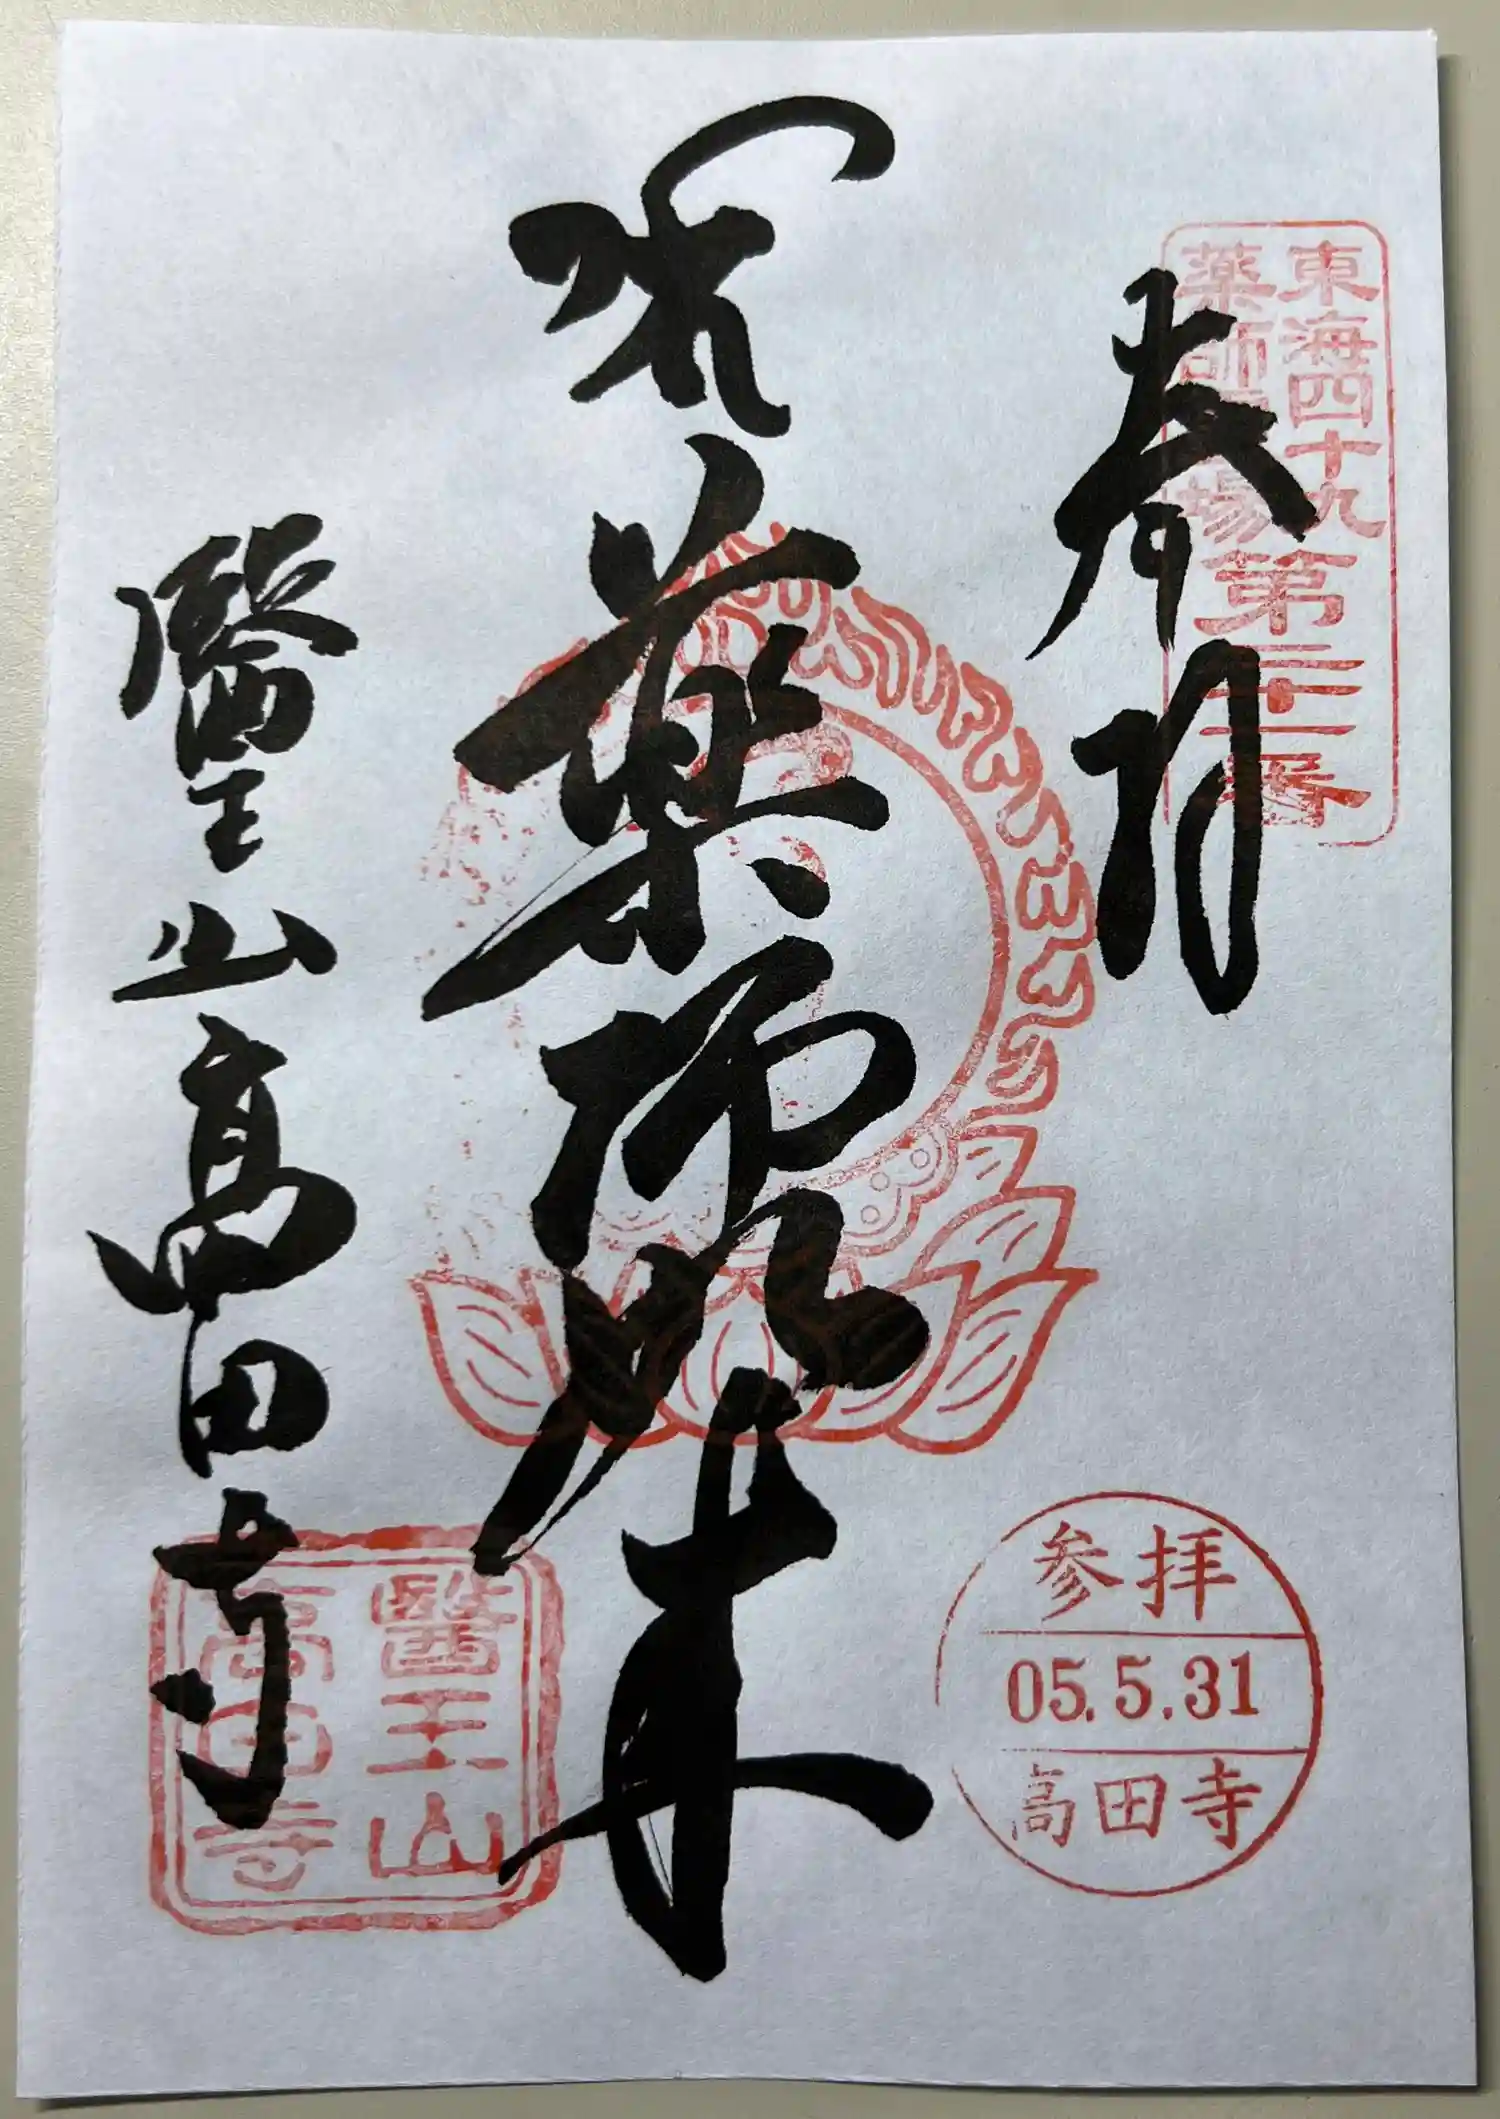 東海四十九
薬師霊場
第二十二番
奉拝
薬師如来
醫王山高田寺
参拝
05.5.31
高田寺
醫王山
高田寺